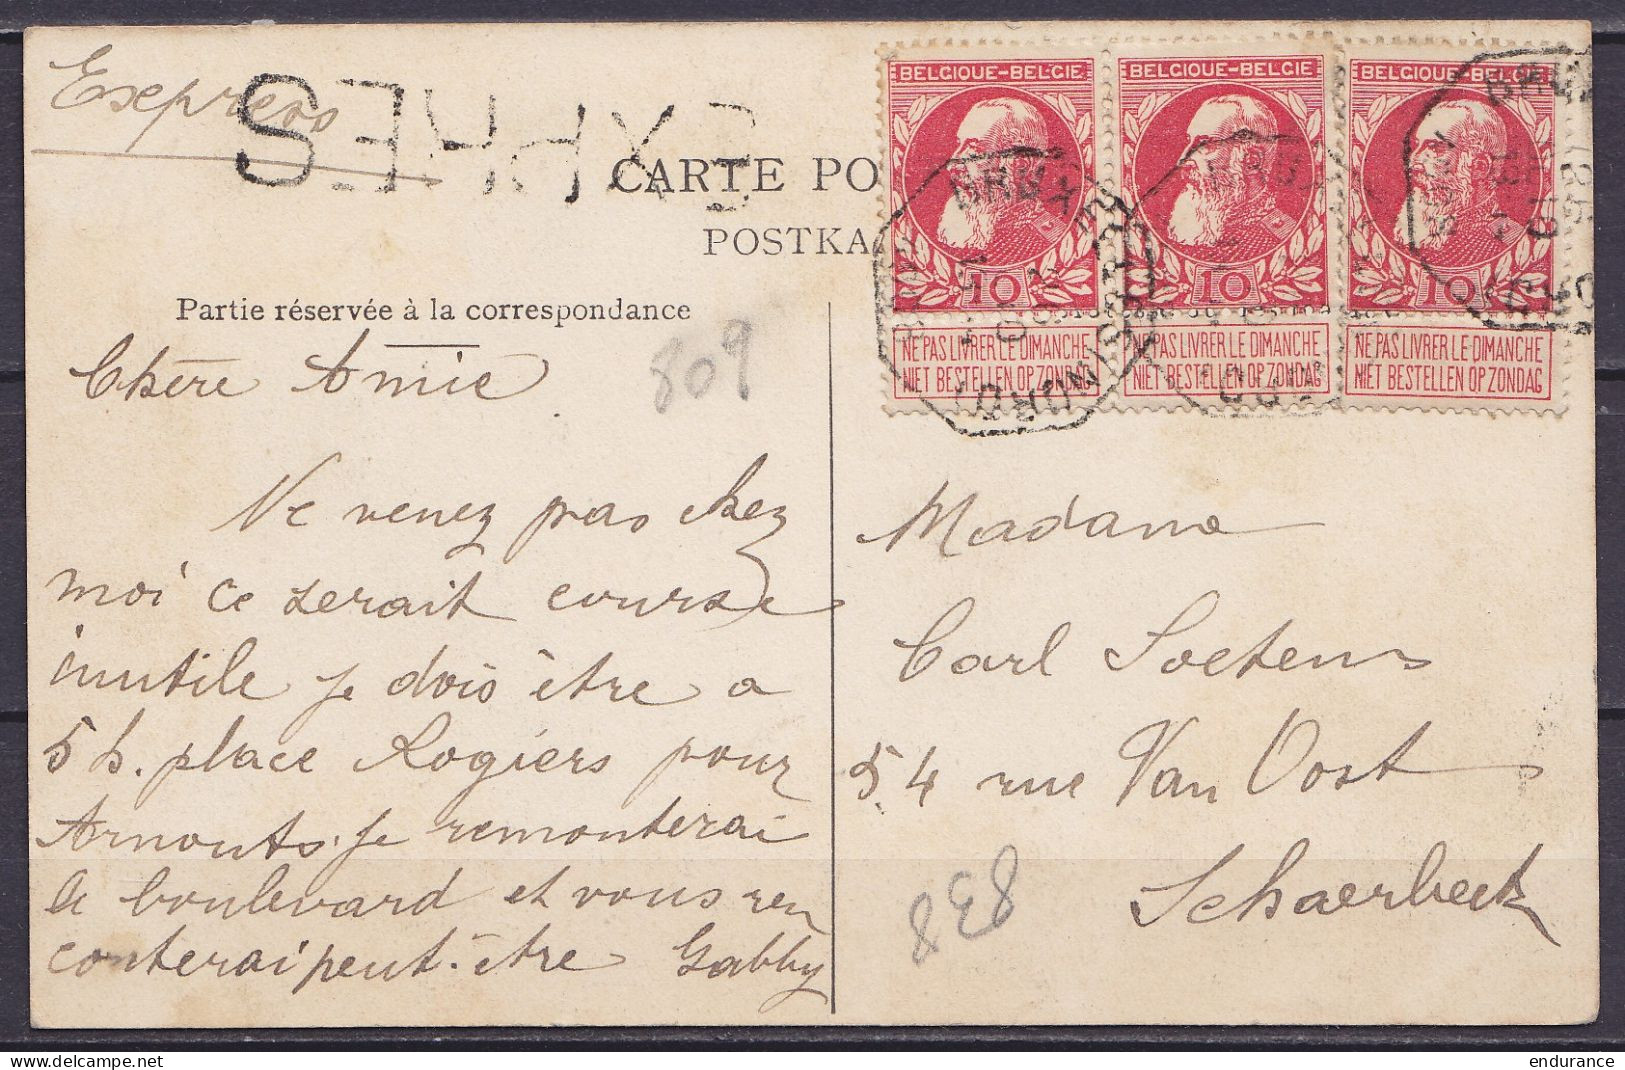 Express
EXPRES
CARTE PO
POSTKA
BELGIQUE-BELGIE BELGIQUE-BELGIE BELGIQUE-BELGIE
10 10 10
NE PAS LIVRER LE DIMANCHE NE PAS LIVRER LE DIMANCHE NE PAS LIVRER LE DIMANCHE
NIET BESTELLEN OP ZONDAG NIET BESTELLEN OP ZONDAG NIET BESTELLEN OP ZONDAG
Partie réservée à la correspondance
809
Chère Amie
Ne venez pas chez
moi ce serait course
inutile je dois être a
5 h. place Rogiers pour
Arnouts. je remonterai
le boulevard et vous ren
conterai peut-être Gabby
Madame
Carl Soetens
54 rue Van Oost
Schaerbeek
838
endurance
delcampe.net